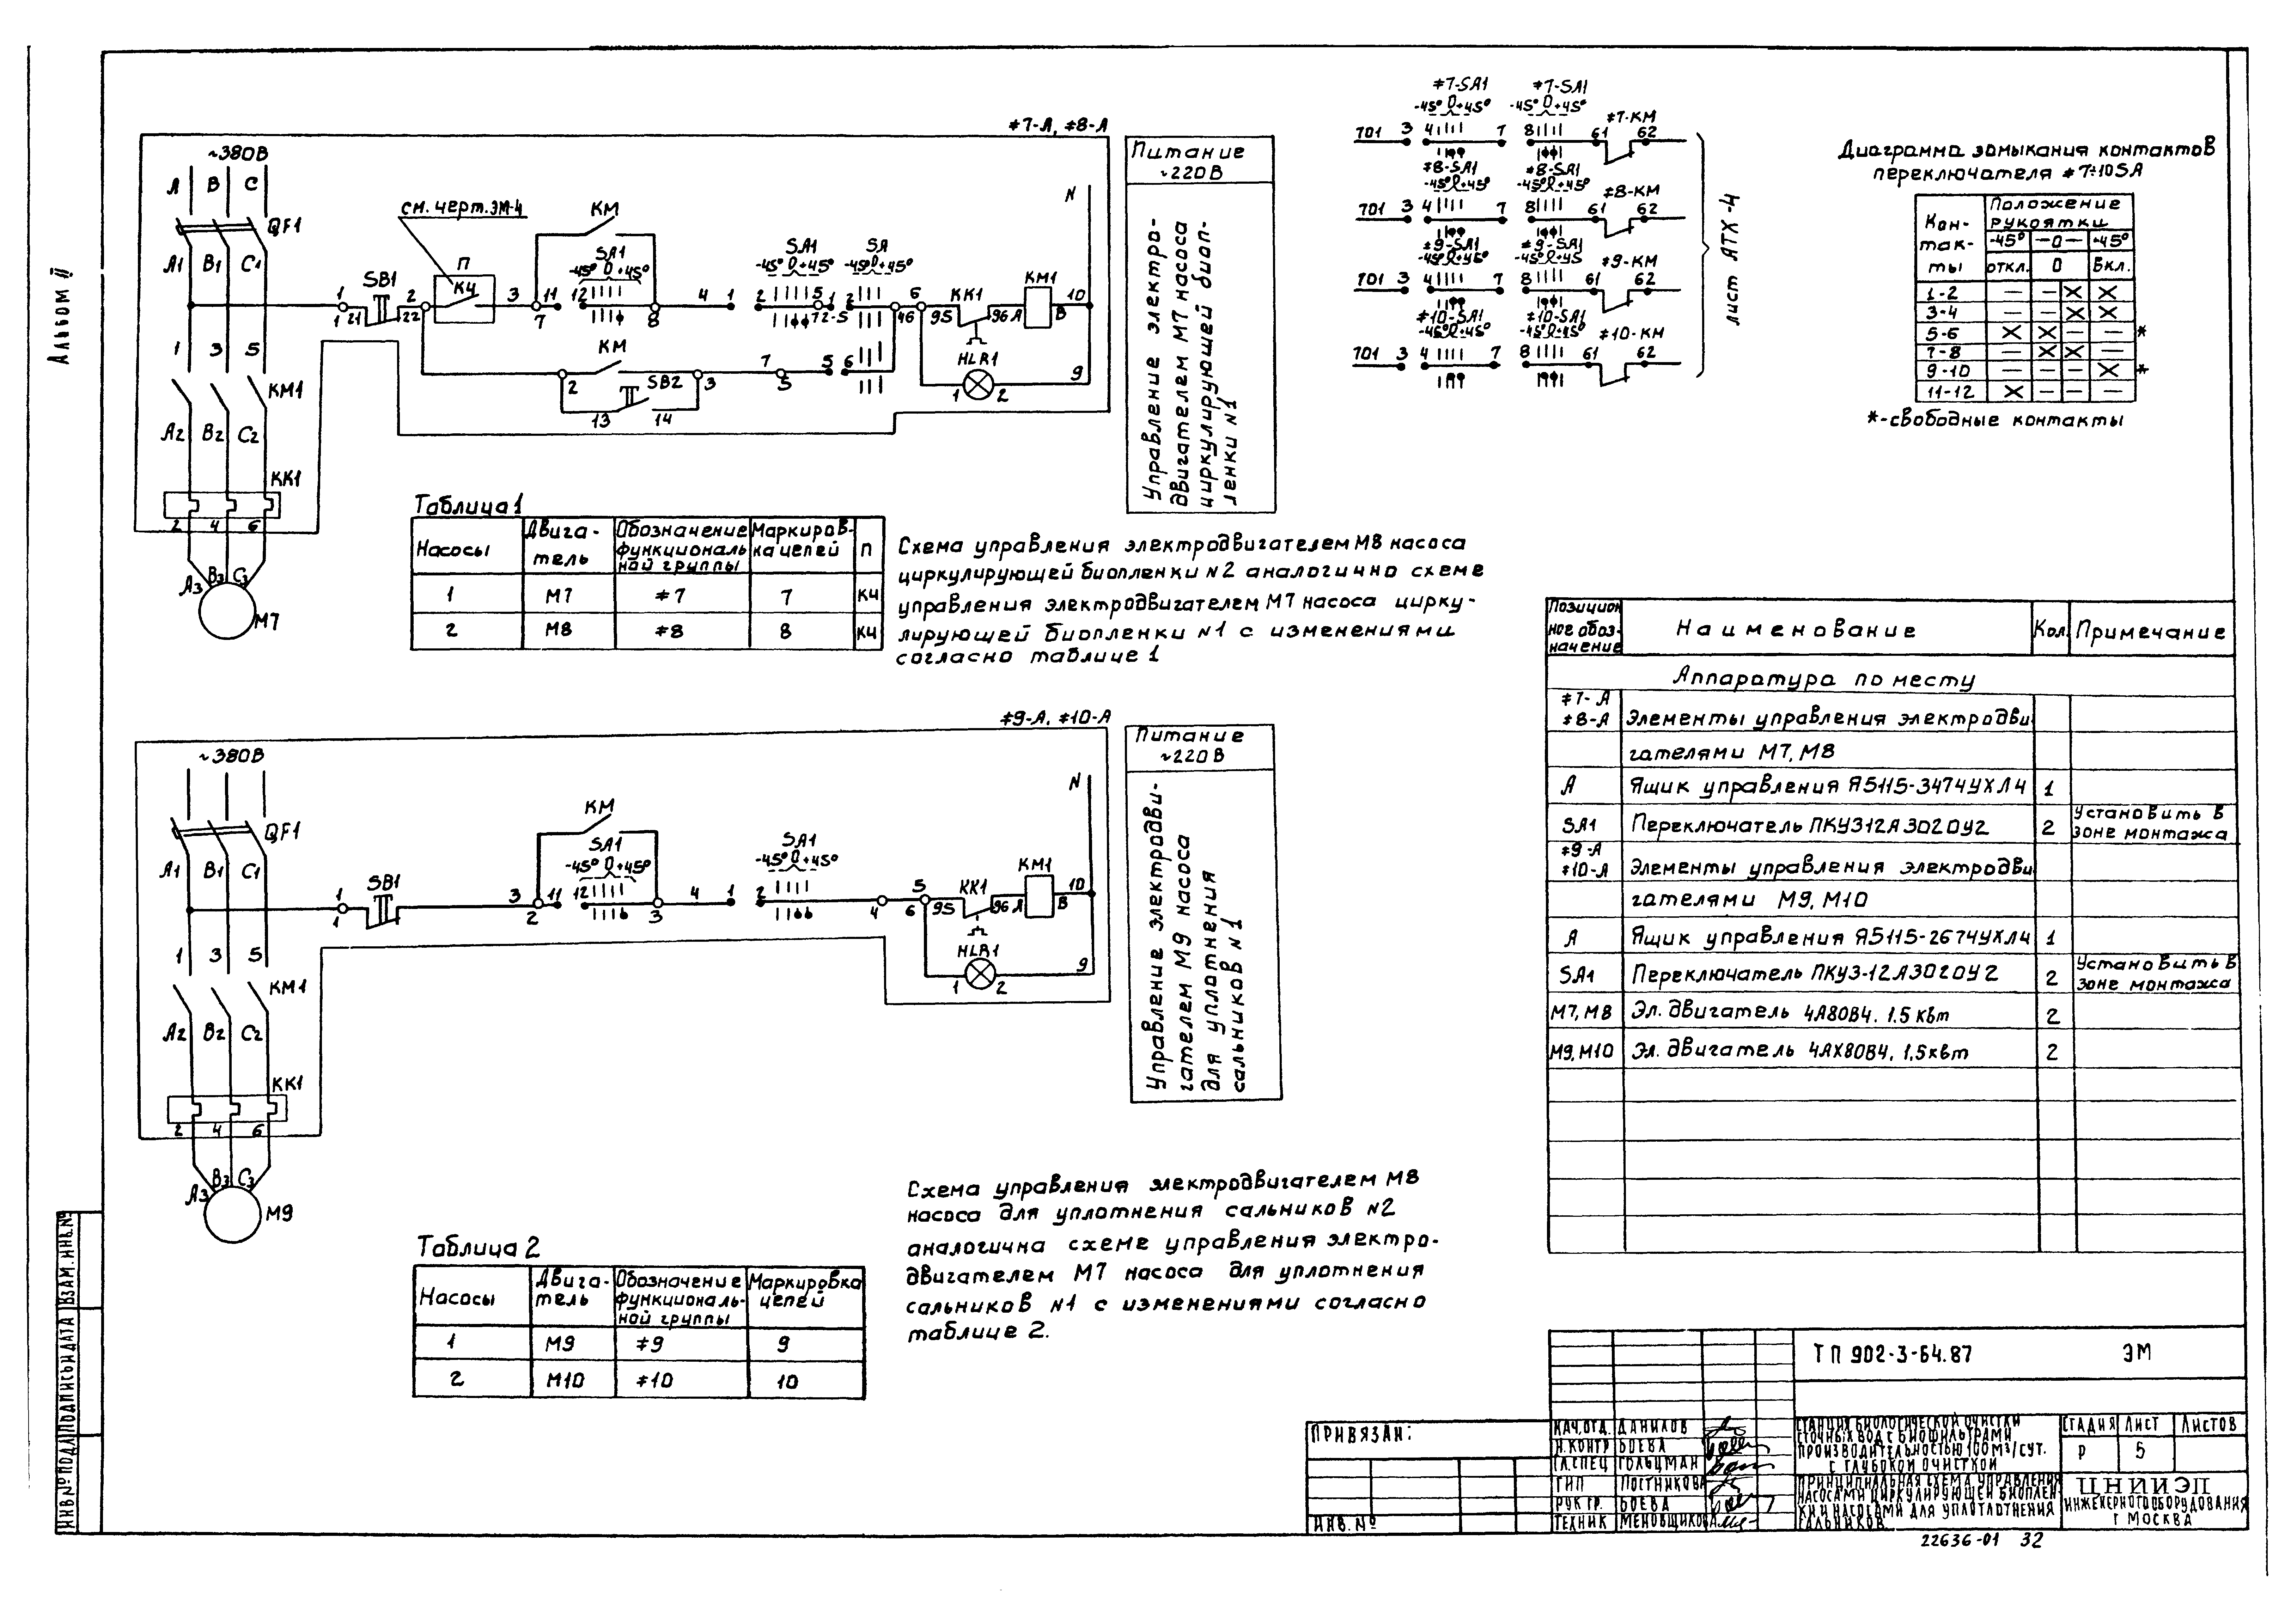 Альбом II
#7-А, #8-А
~380В
А В С
QF1
А1 В1 С1
1 3 5
КМ1
А2 В2 С2
КК1
2 4 6
А3 В3 С3
М7
см. черт. ЭМ-4
П
К4
SB1
1 1 21 22 2
3 11 7
КМ
SA1
-45° 0 +45°
12 8 4 1
SA1
-45° 0 +45°
SA
-45° 0 +45°
6 46 95
КК1
96 А
КМ1
В 10
N
HLR1
1 2 9
КМ
2 3 7 5 5 6
SB2
13 14
Питание
~220В
Управление электро-
двигателем М7 насоса
циркулирующей биоп-
ленки №1
#7-SA1 #7-SA1
-45° 0 +45° -45° 0 +45°
701 3 4 7 8 61 62
#7-КМ
#8-SA1 #8-SA1
-45° 0 +45° -45° 0 +45°
701 3 4 7 8 61 62
#8-КМ
#9-SA1 #9-SA1
-45° 0 +45° -45° 0 +45
701 3 4 7 8 61 62
#9-КМ
#10-SA1 #10-SA1
-45° 0 +45° -45° 0 +45°
701 3 4 7 8 61 62
#10-КМ
лист АТХ-4
Диаграмма замыкания контактов
переключателя #7÷10SA
Кон-
так-
ты
Положение
рукоятки
-45° —0— +45°
откл. 0 Вкл.
1-2 — — X X
3-4 — — X X
5-6 X X — — *
7-8 — X X —
9-10 — — — X *
11-12 X — — —
*-свободные контакты
Таблица 1
Насосы | Двига-тель | Обозначение функциональ ной группы | Маркиров-ка цепей | П
1 М7 #7 7 К4
2 М8 #8 8 К4
Схема управления электродвигателем М8 насоса
циркулирующей биопленки №2 аналогично схеме
управления электродвигателем М7 насоса цирку-
лирующей биопленки №1 с изменениями
согласно таблице 1
#9-А, #10-А
~380В
QF1
А1 В1 С1
1 3 5
КМ1
А2 В2 С2
КК1
2 4 6
А3 В3 С3
М9
SB1
1 1
3 2 11
КМ
SA1
-45° 0 +45°
12 3 4 1
SA1
-45° 0 +45°
2 4 5 6 95
КК1
96 А
КМ1
В 10
N
HLR1
1 2 9
Питание
~220В
Управление электродви-
гателем М9 насоса
для уплотнения
сальников №1
Таблица 2
Насосы | Двига-тель | Обозначение функциональ-ной группы | Маркировка цепей
1 М9 #9 9
2 М10 #10 10
Схема управления электродвигателем М8
насоса для уплотнения сальников №2
аналогична схеме управления электро-
двигателем М7 насоса для уплотнения
сальников №1 с изменениями согласно
таблице 2.
Позицион
ное обоз-
начение
Наименование Кол. Примечание
Аппаратура по месту
#7-А
#8-А Элементы управления электродви
гателями М7, М8
А Ящик управления Я5115-3474УХЛ4 1
SA1 Переключатель ПКУ312А3020У2 2 Установить в
зоне монтажа
#9-А
#10-А Элементы управления электродви
гателями М9, М10
А Ящик управления Я5115-2674УХЛ4 1
SA1 Переключатель ПКУ3-12А3020У2 2 Установить в
зоне монтажа
М7, М8 Эл. двигатель 4А80В4. 1.5 кВт 2
М9, М10 Эл. двигатель 4АХ80В4, 1,5кВт 2
ТП 902-3-64.87 ЭМ
Привязан:
Инв. №
Нач. отд. Данилов
Н. контр Боева
Гл. спец Гольцман
ГИП Постникова
Рук. гр. Боева
Техник Меновщикова
Станция биологической очистки
сточных вод с биофильтрами
производительностью 100м³/сут.
с глубокой очисткой
Стадия Лист Листов
Р 5
Принципиальная схема управления
насосами циркулирующей биоплен
ки и насосами для уплотлотнения
сальников
ЦНИИЭП
инженерного оборудования
г Москва
22636-01 32
Инв № подл Подпись и дата Взам. инв. №